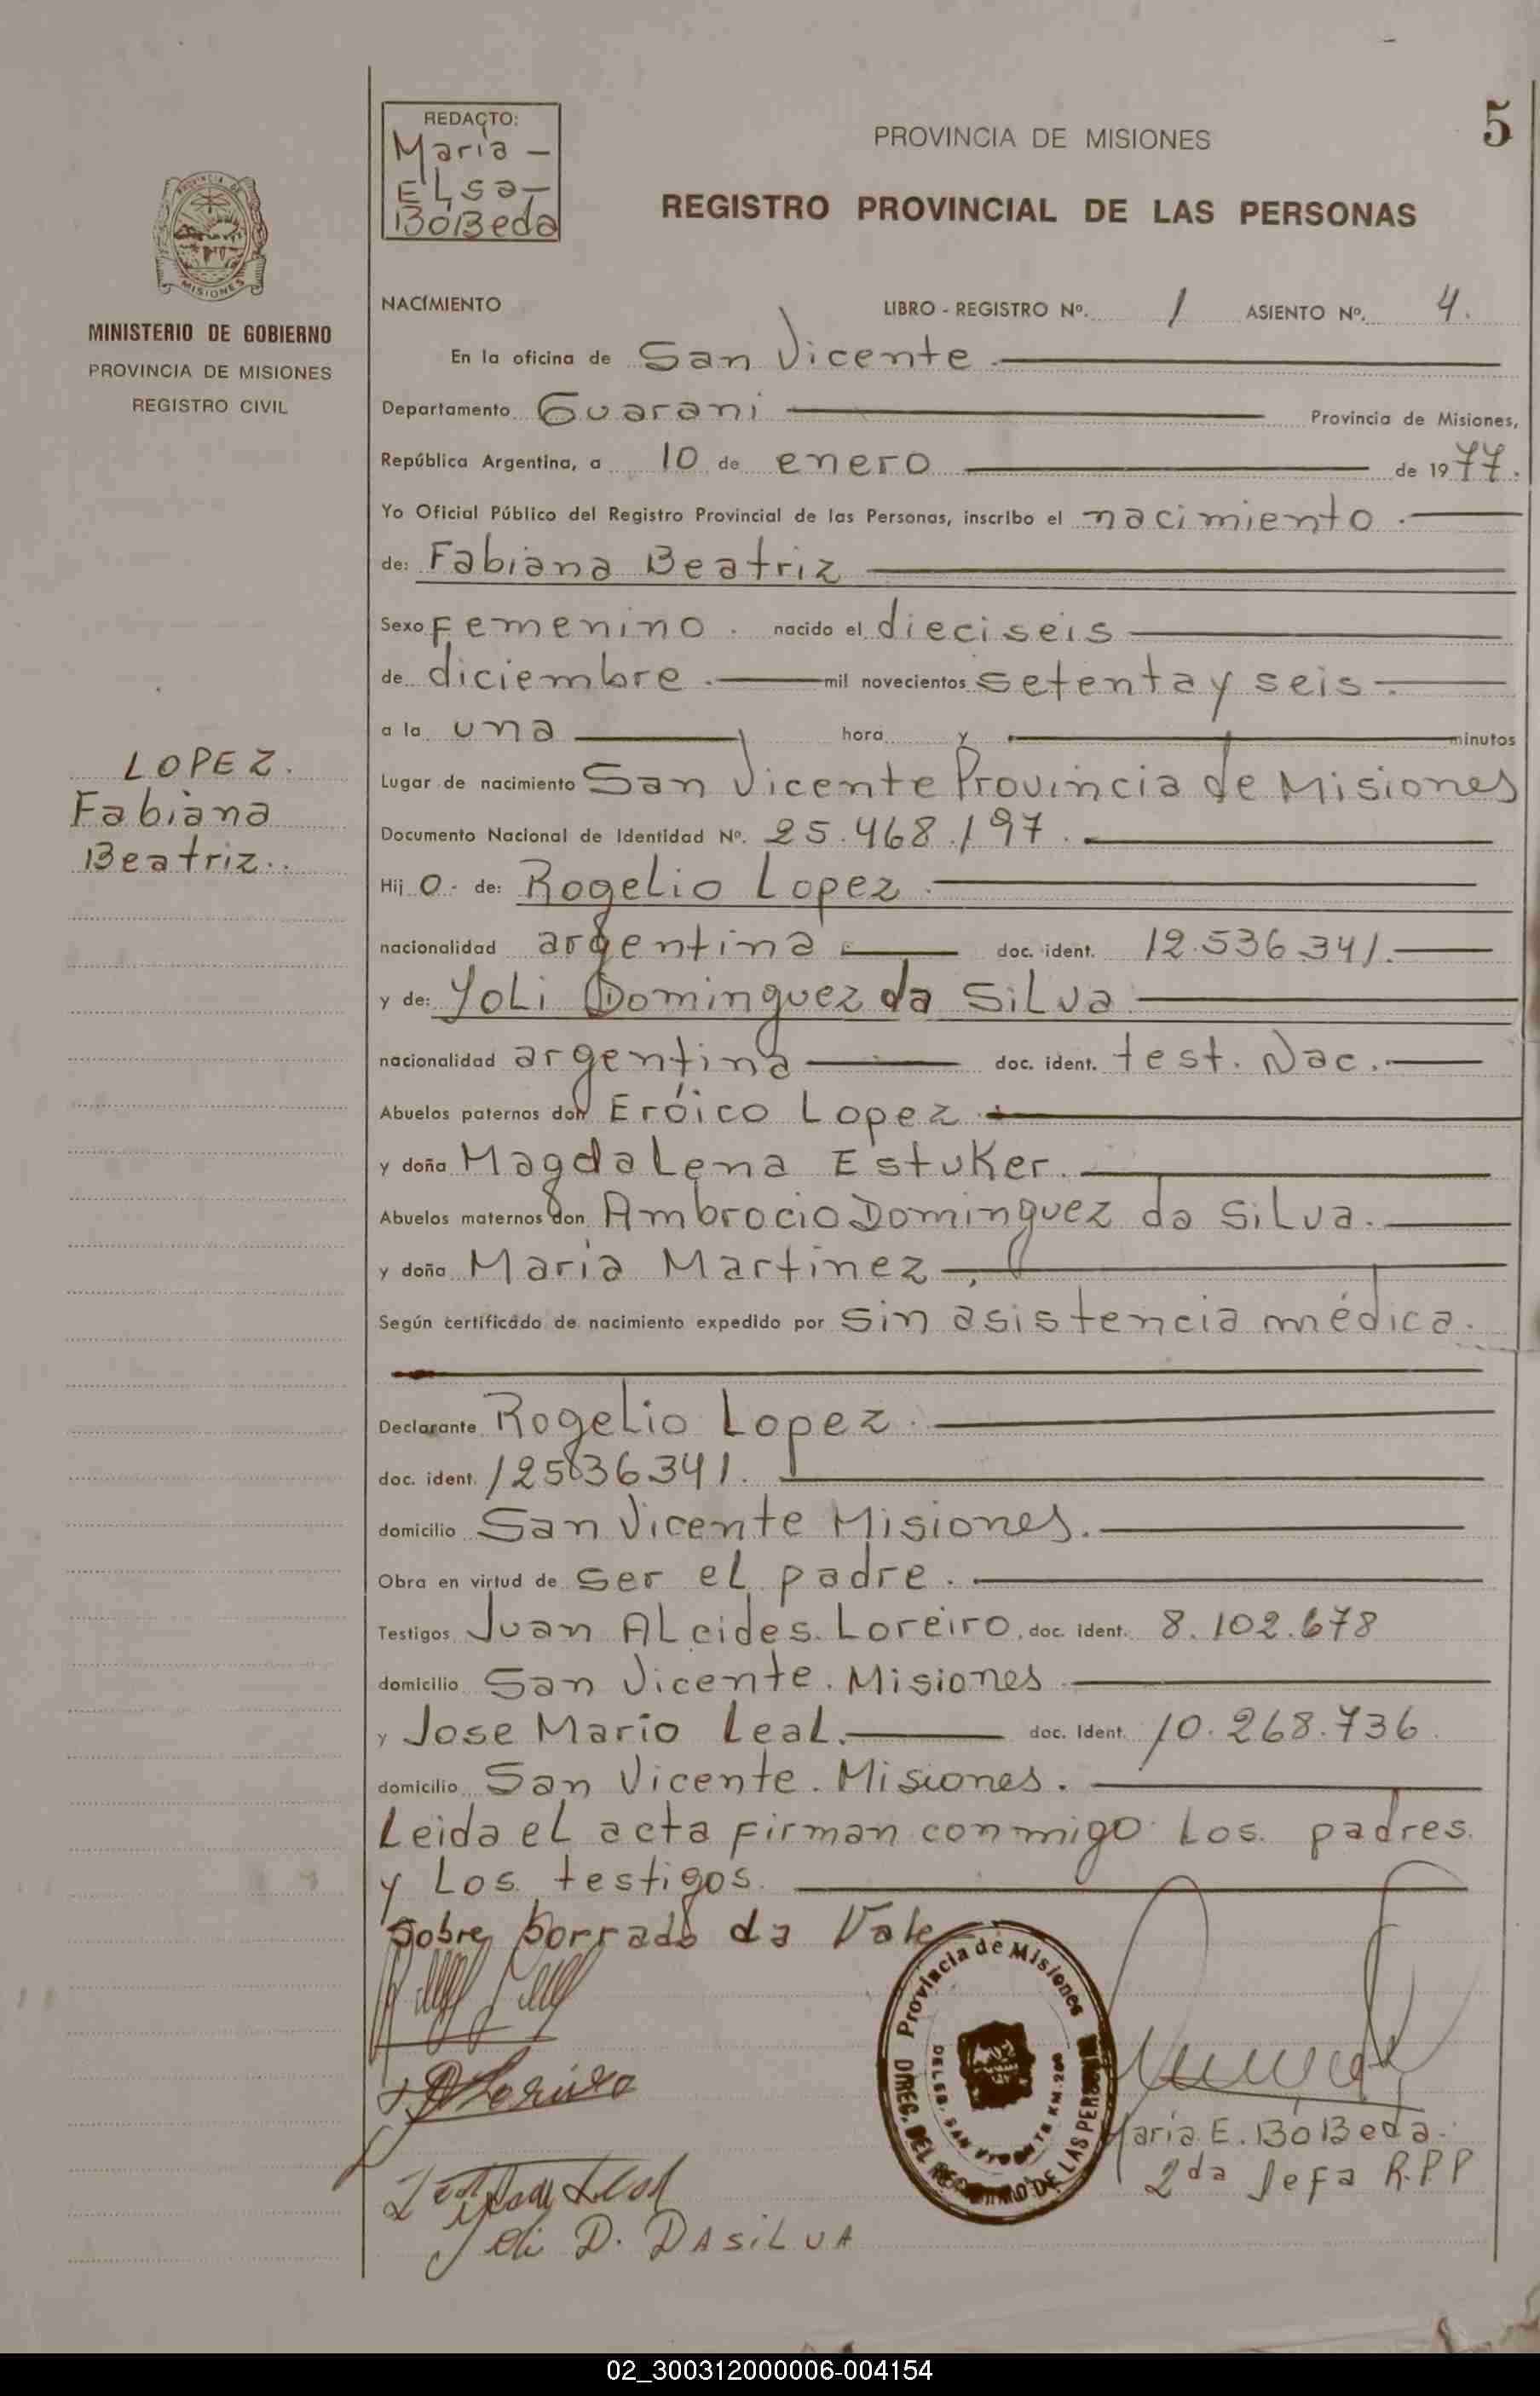 5
REDACTO:
Maria -
ELsa -
BóBeda
PROVINCIA DE MISIONES
REGISTRO PROVINCIAL DE LAS PERSONAS
MISIONES
MINISTERIO DE GOBIERNO
PROVINCIA DE MISIONES
REGISTRO CIVIL
NACIMIENTO LIBRO - REGISTRO Nº. 1 ASIENTO Nº. 4.
En la oficina de San Vicente
Departamento Guarani Provincia de Misiones,
República Argentina, a 10 de enero de 1977.
Yo Oficial Público del Registro Provincial de las Personas, inscribo el nacimiento.
de: Fabiana Beatriz
Sexo Femenino. nacido el dieciseis
de diciembre. mil novecientos setenta y seis.
a la una hora y minutos
LOPEZ.
Fabiana
Beatriz..
Lugar de nacimiento San Vicente Provincia de Misiones
Documento Nacional de Identidad Nº. 25.468.197.
Hij o- de: Rogelio Lopez.
nacionalidad argentina doc. ident. 12.536.341.
y de: Yoli Dominguez da Silva
nacionalidad argentina doc. ident. test. Nac.
Abuelos paternos don Eróico Lopez
y doña Magdalena Estuker.
Abuelos maternos don Ambrocio Dominguez da Silva.
y doña Maria Martinez
Según certificado de nacimiento expedido por sin asistencia médica.
Declarante Rogelio Lopez.
doc. ident. 12536341.
domicilio San Vicente Misiones.
Obra en virtud de ser el padre.
Testigos Juan Alcides Loreiro. doc. ident. 8.102.678
domicilio San Vicente. Misiones
y Jose Mario Leal. doc. Ident. 10.268.736
domicilio San Vicente. Misiones.
Leida el acta firman conmigo los padres
y Los testigos.
Sobre borrado da Vale
Provincia de Misiones
DIREC. DEL REGISTRO DE LAS PERSONAS
DELEG. SAN VICENTE KM.
Maria E. BóBeda.
2da Jefa R.P.P
Yoli D. DASILVA
02_300312000006-004154